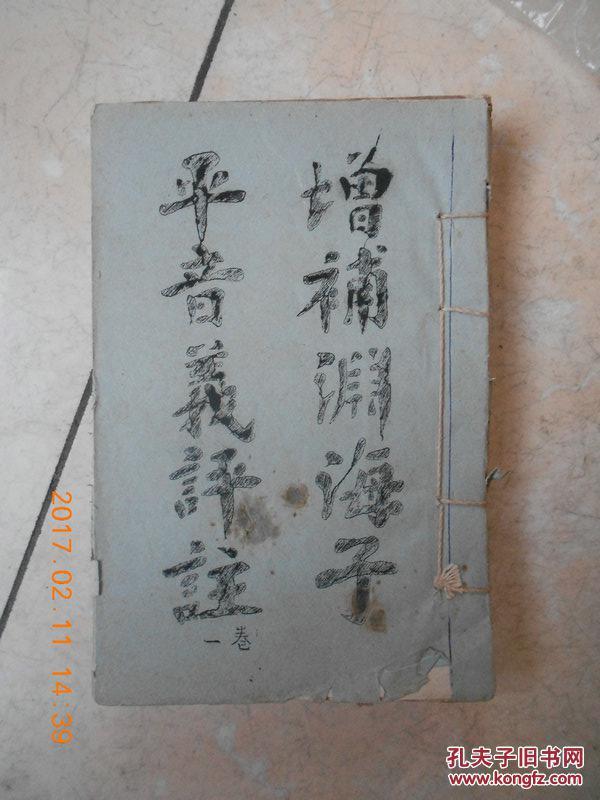 增補淵海子
平音義評註
卷一
2017.02.11 14:39
孔夫子旧书网
www.kongfz.com